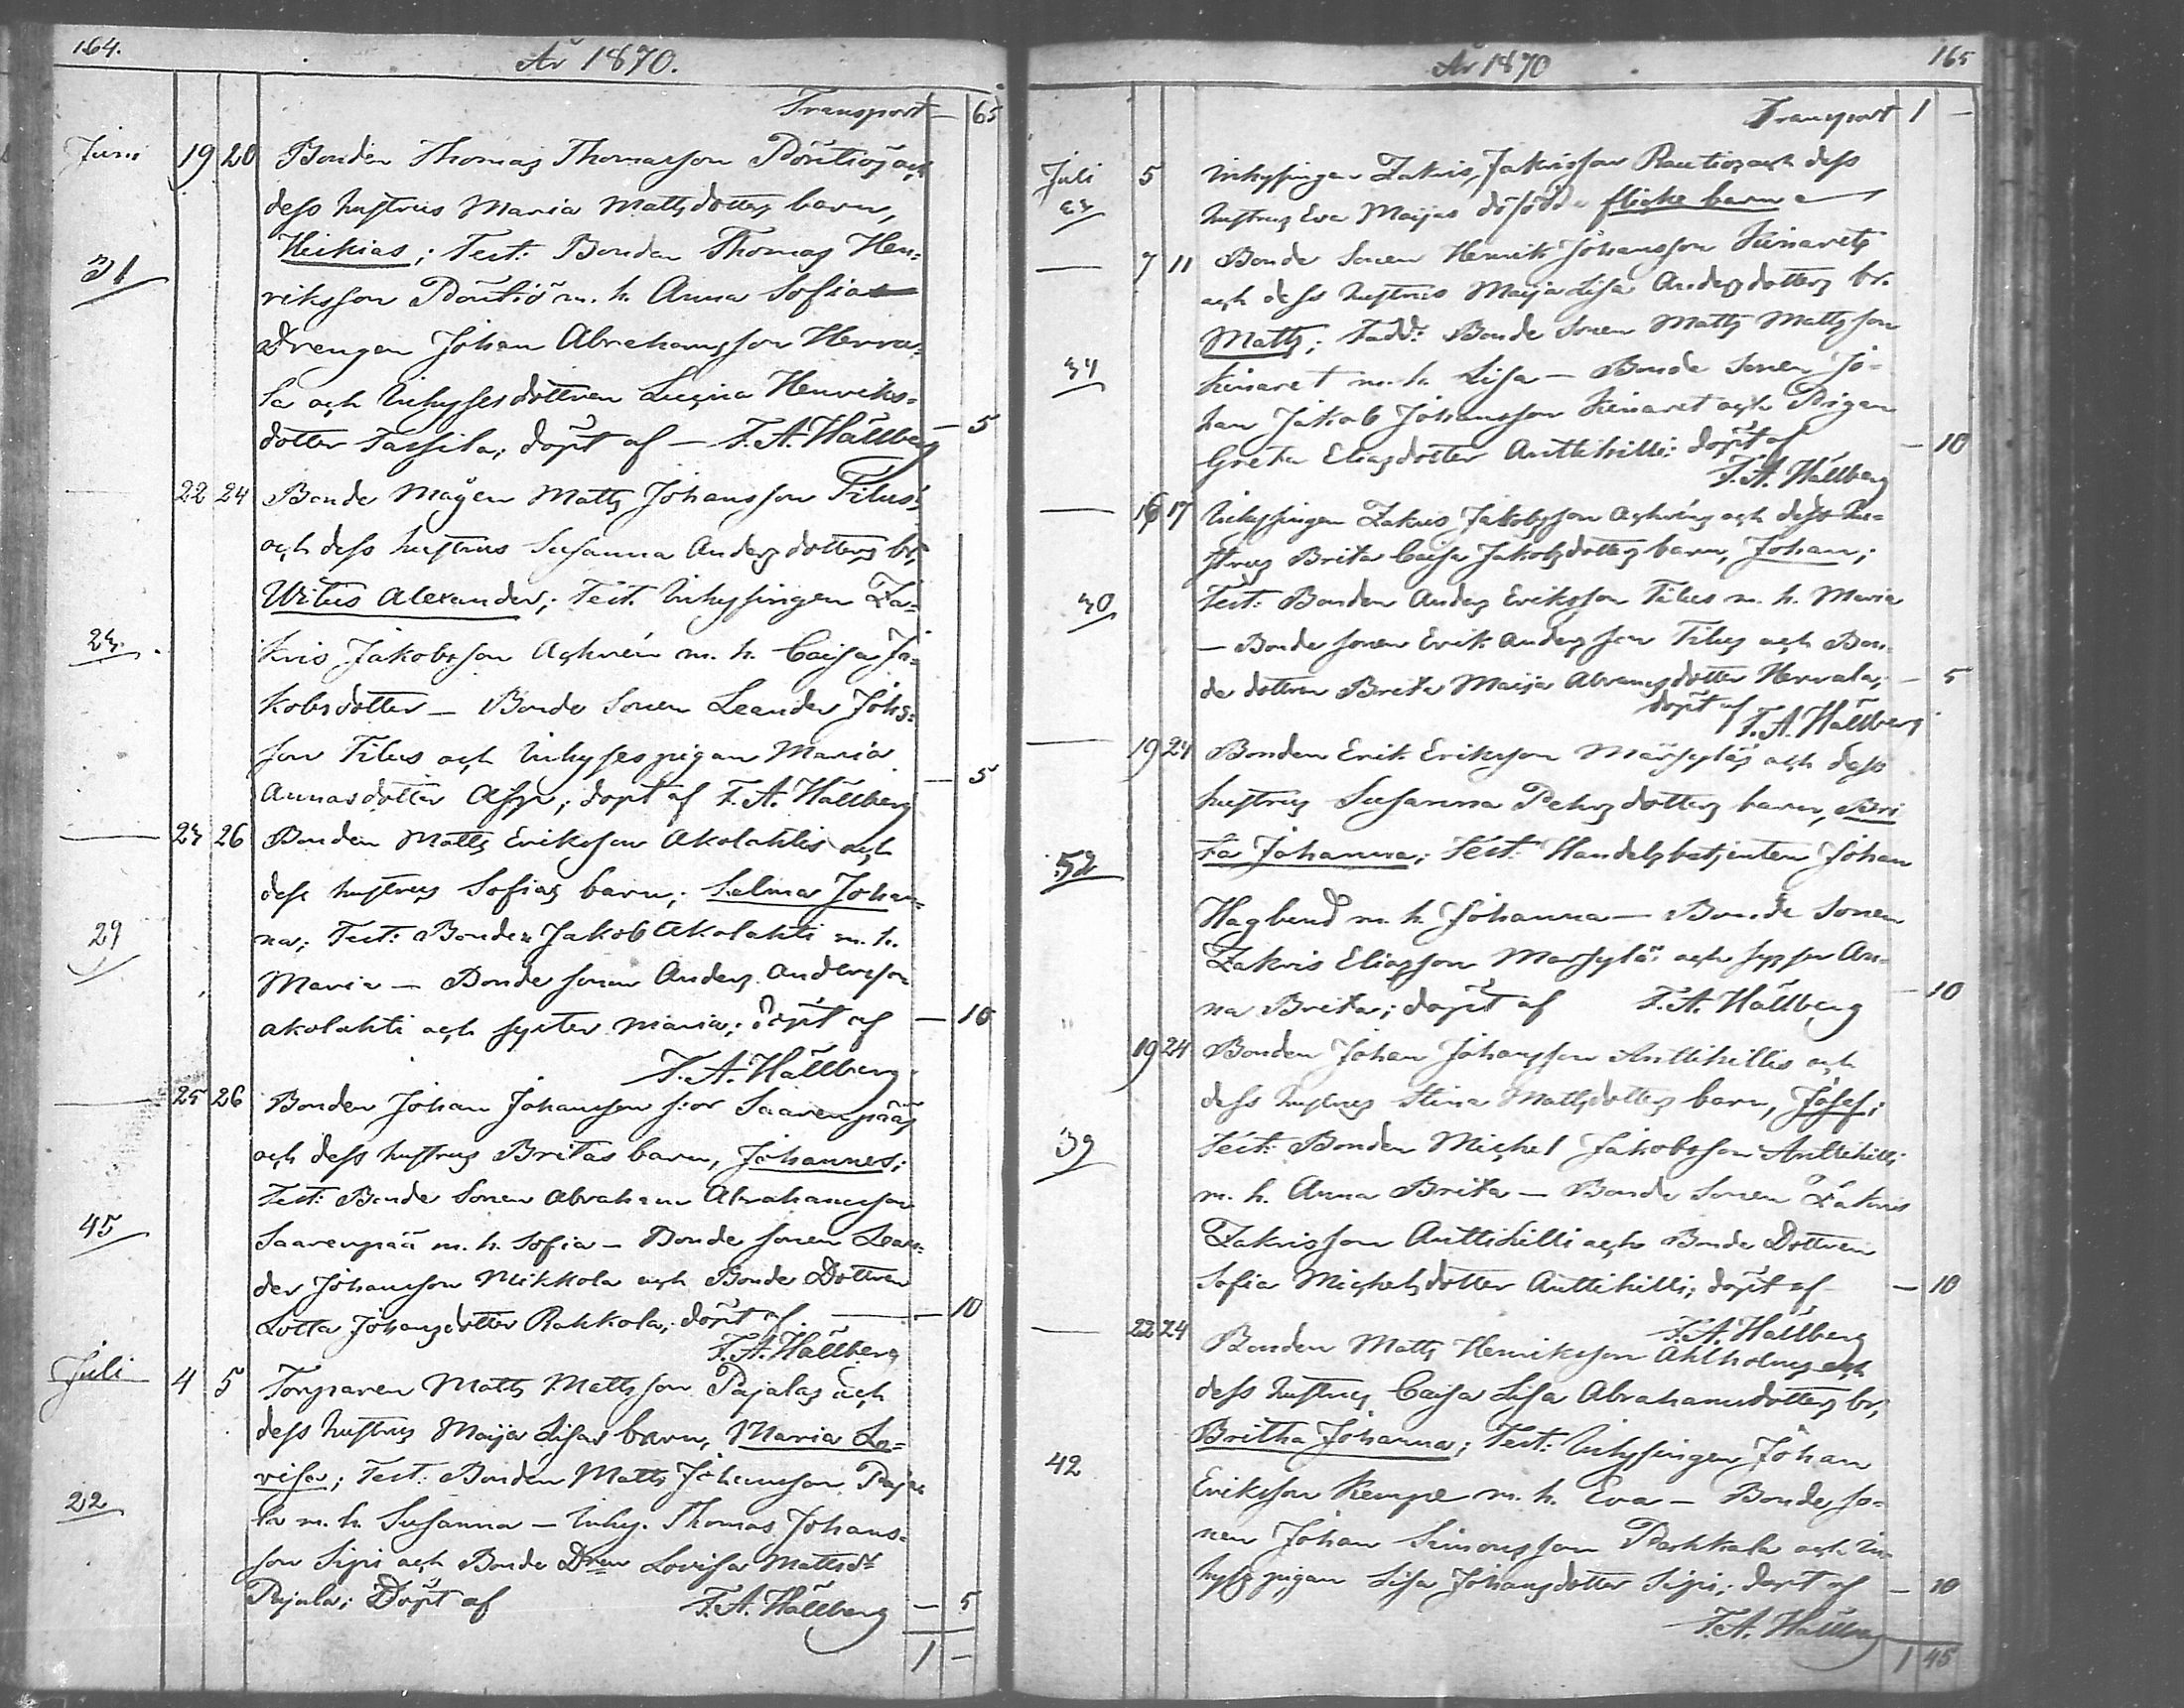 164.
År 1870.
Transport — 65
Juni 19 20 Bonden Thomas Thomasson Pöntiös och
dess hustrus Maria Mattsdotters barn,
31 Heikias; Test: Bonden Thomas Hen=
riksson Pöntiö m. h. Anna Sofia
Drengen Johan Abrahamsson Herra=
la och Inhysesdottren Lucina Henriks=
dotter Tassila; döpt af — F. A. Hällberg — 5
— 22 24 Bonde Mågen Matts Johansson Tilus
och dess hustrus Susanna Andersdotters br,
Witus Alexander; Test. Inhysingen Za=
23. kris Jakobsson Achrén m. h. Caisa Ja=
kobsdotter — Bonde Sonen Leander Johs=
son Tilus och Inhysespigan Maria
Annasdotter Asp; döpt af F. A. Hällberg — 5
— 23 26 Bonden Matts Eriksson Akolahtis och
dess hustrus Sofias barn; Selma Johan=
29 na; Test: Bonden Jakob Akolahti m. h.
Maria — Bonde sonen Anders Andersson
Akolahti och syster Maria; Döpt af — 10
F. A. Hällberg
— 25 26 Bonden Johan Johansson s:or Saarenpääs
och dess hustrus Britas barn, Johannes;
Test: Bonde Sonen Abraham Abrahamsson
45 Saarenpää m. h. Sofia — Bonde sonen Lean=
der Johansson Nikkola och Bonde Dottren
Lotta Johansdotter Rahkola; döpt af — 10
F. A. Hällberg
Juli 4 5 Torparen Matts Mattsson Pajalas och
dess hustrus Maija Lisas barn, Maria Lo=
visa; Test: Bonden Matts Johansson Paja
22 la m. h. Susanna — Inhy. Thomas Johans=
son Sipi och Bonde Dren Lovisa Mattsdr
Pajala; Döpt af F. A. Hällberg — 5
1 —
165
År 1870
Transport 1 —
Juli 5 Inhysingen Zakris Zakrisson Rautios och dess
23 hustrus Eva Maijas dödfödda flicke barn —
— 7 11 Bonde Sonen Henrik Johansson Kinarets
och dess hustrus Maija Lisa Andersdotters br.
Matts; Fadd: Bonde Sonen Matts Mattsson
34 Kinaret m. h. Lisa — Bonde Sonen Jo=
han Jakob Johansson Kinaret och Pigan
Greta Eliasdotter Anttihilli; döpt af — 10
F. A. Hällberg
— 16 17 Inhysingen Zakris Jakobsson Achréns och dess hu=
strus Brita Caisa Jakobsdotters barn, Johan;
30 Test: Bonden Anders Eriksson Tilus m. h. Maria
— Bonde sonen Erik Andersson Tilus och Bon=
de dottren Brita Maija Abramsdotter Herrala; — 5
döpt af F. A. Hällberg
— 19 24 Bonden Erik Eriksson Märsyläs och dess
hustrus Susanna Pehrsdotters barn, Bri
52 ta Johanna; Test: Handelsbetjenten Johan
Haglund m. h. Johanna — Bonde Sonen
Zakris Eliasson Marsylä och syster An=
na Brita; döpt af F. A. Hällberg — 10
" 19 24 Bonden Johan Johansson Anttihillis och
dess hustrus Stina Mattsdotters barn, Josef;
39 Test: Bonden Michel Jakobsson Anttihilli
m. h. Anna Brita — Bonde Sonen Zakris
Zakrisson Anttihilli och Bonde Dottren
Sofia Michelsdotter Anttihilli; döpt af — 10
F. A. Hällberg
— 22 24 Bonden Matts Henriksson Ahlholms och
dess hustrus Caisa Lisa Abrahamsdotters br,
Britha Johanna; Test: Inhysingen Johan
42 Eriksson Kempe m. h. Eva — Bonde so=
nen Johan Simonsson Pahkala och In=
hyses pigan Lisa Johansdotter Sipi; döpt af — 10
F. A. Hällberg
1 45